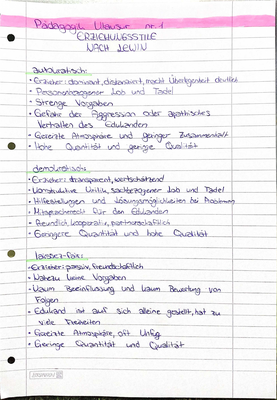 Pädagogik Klausur nr. 1
ERZIEHUNGSSTILE
NACH LEWIN
autoritatisch:
• Erzieher: dominant, distanziert, macht Überlegenheit deutlich
• Personenbezogener Lob und Tadel
• Strenge Vorgaben
• Gefahr der Aggression oder apathisches
Verhalten des Edukanden
• Gereizte Atmosphäre und geringer Zusammenhalt
• Hohe Quantität und geringe Qualität
demokratisch:
• Erzieher: transparent, wertschätzend
• Konstruktive Kritik, sachbezogener Lob und Tadel
• Hilfestellungen und Lösungsmöglichkeiten bei Problemen
• Mitspracherecht für den Edukanden
• Freundlich, kooperativ, partnerschaftlich
• Geringere Quantität und hohe Qualität
laissez-faire:
• Erzieher: passiv, freundschaftlich
• Nahezu keine Vorgaben
• Kaum Beeinflussung und kaum Bewertung von
Folgen
• Edukand ist auf sich alleine gestellt, hat zu
viele Freiheiten
• Gereizte Atmosphäre, oft Unfug
• Geringe Quantität und Qualität